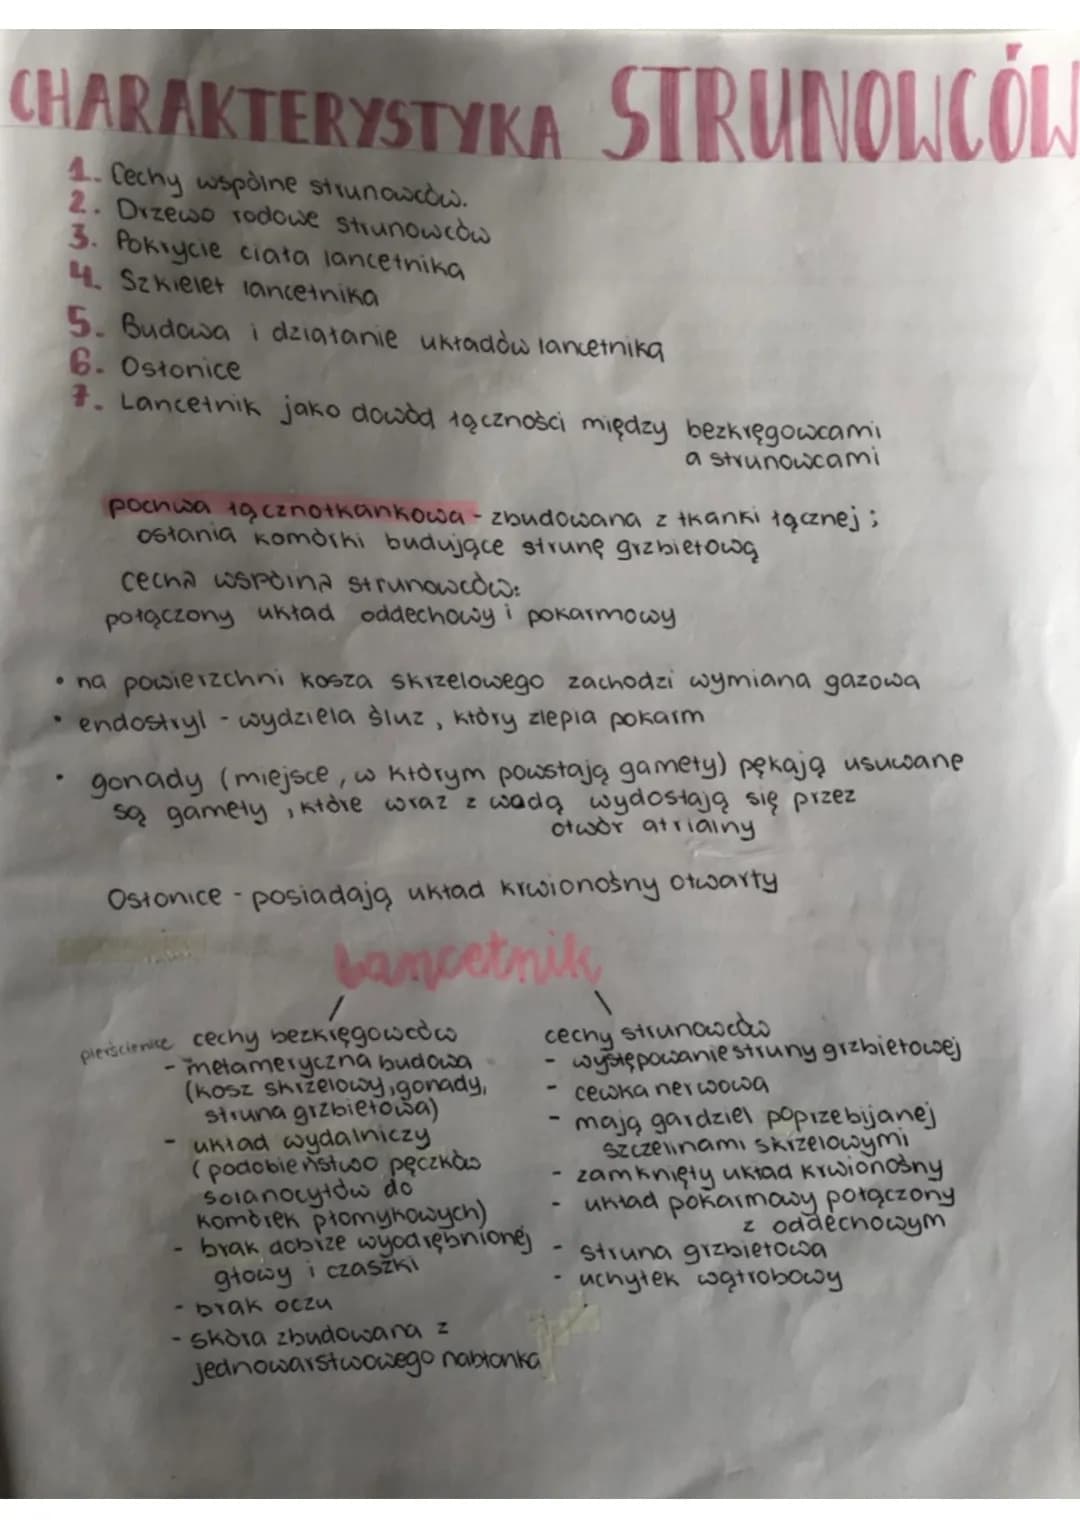 CHARAKTERYSTYKA STRUNOWCÓW
1. Cechy wspólne strunowców.
2. Drzewo rodowe strunowców
3. Pokrycie ciała lancetnika
4. Szkielet lancetnika
5. Budowa i działanie układów lancetnika
6. Osłonice
7. Lancetnik jako dowód łączności między bezkręgowcami
a strunowcami
pochwa łącznotkankowa - zbudowana z tkanki łącznej;
osłania komórki budujące strunę grzbietową
cecha wspólna strunowców:
połączony układ oddechowy i pokarmowy
• na powierzchni kosza skrzelowego zachodzi wymiana gazowa
• endostryl - wydziela śluz, który zlepia pokarm
• gonady (miejsce, w którym powstają gamety) pękają usuwane
są gamety, które wraz z wodą wydostają się przez
otwór atrialny
Osłonice - posiadają układ krwionośny otwarty
Lancetnik
pierścienice cechy bezkręgowców
- metameryczna budowa
(kosz skrzelowy, gonady,
struna grzbietowa)
- układ wydalniczy
(podobieństwo pęczków
solanocytów do
komórek płomykowych)
- brak dobrze wyodrębnionej
głowy i czaszki
- brak oczu
- skóra zbudowana z
jednowarstwowego nabłonka
cechy strunowców
- występowanie struny grzbietowej
- cewka nerwowa
- mają gardziel poprzebijanej
szczelinami skrzelowymi
- zamknięty układ krwionośny
- układ pokarmowy połączony
z oddechowym
- struna grzbietowa
- uchyłek wątrobowy